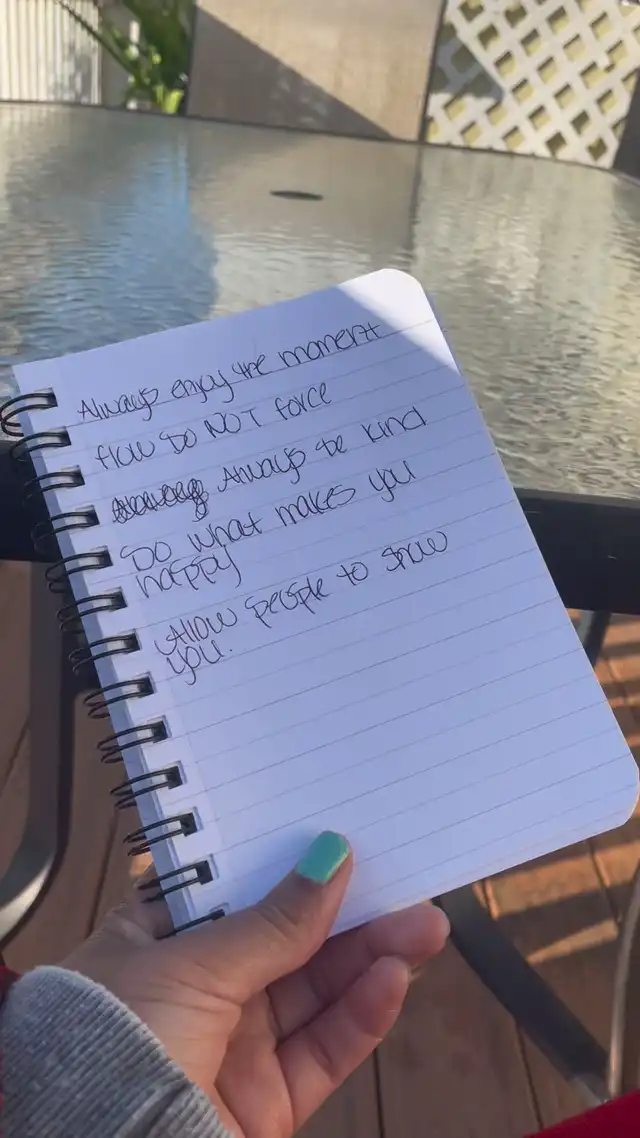 Always enjoy the moment
flow DO NOT force
Always be kind
Do what makes you
happy
Allow people to show
you.